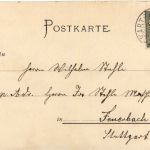 POSTKARTE
Herrn Wilhelm Stahl
p. Adr. Herrn Fr. Stahl
in Feuerbach
Stuttgart